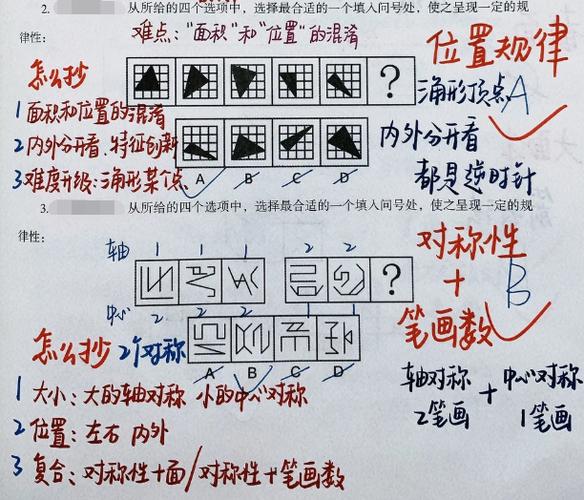 2. 从所给的四个选项中，选择最合适的一个填入问号处，使之呈现一定的规
律性：
难点："面积"和"位置"的混淆
位置规律
怎么抄
1 面积和位置的混淆
2 内外分开看、特征创新
3 难度升级：三角形某个点
?
A B C D
三角形顶点 A
内外分开看
都是逆时针
3. 从所给的四个选项中，选择最合适的一个填入问号处，使之呈现一定的规
律性：
轴 1 1 1 2 2
?
中心 2 2 2 1 1
A B C D
对称性
+
笔画数
B
轴对称 + 中心对称
2笔画 1笔画
怎么抄 2个对称
1 大小：大的轴对称 小的中心对称
2 位置：左右 内外
3 复合：对称性+面/对称性+笔画数